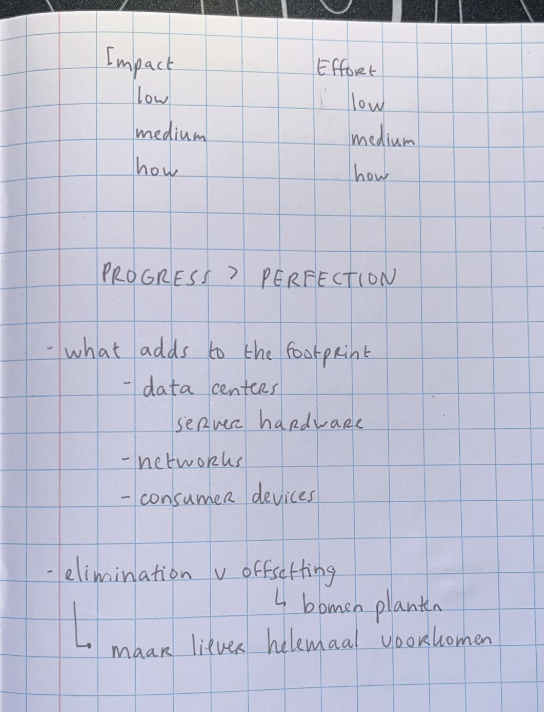 Impact Effort
low low
medium medium
how how
PROGRESS > PERFECTION
- what adds to the footprint
- data centers
server hardware
- networks
- consumer devices
- elimination v offsetting
↳ bomen planten
↳ maar liever helemaal voorkomen